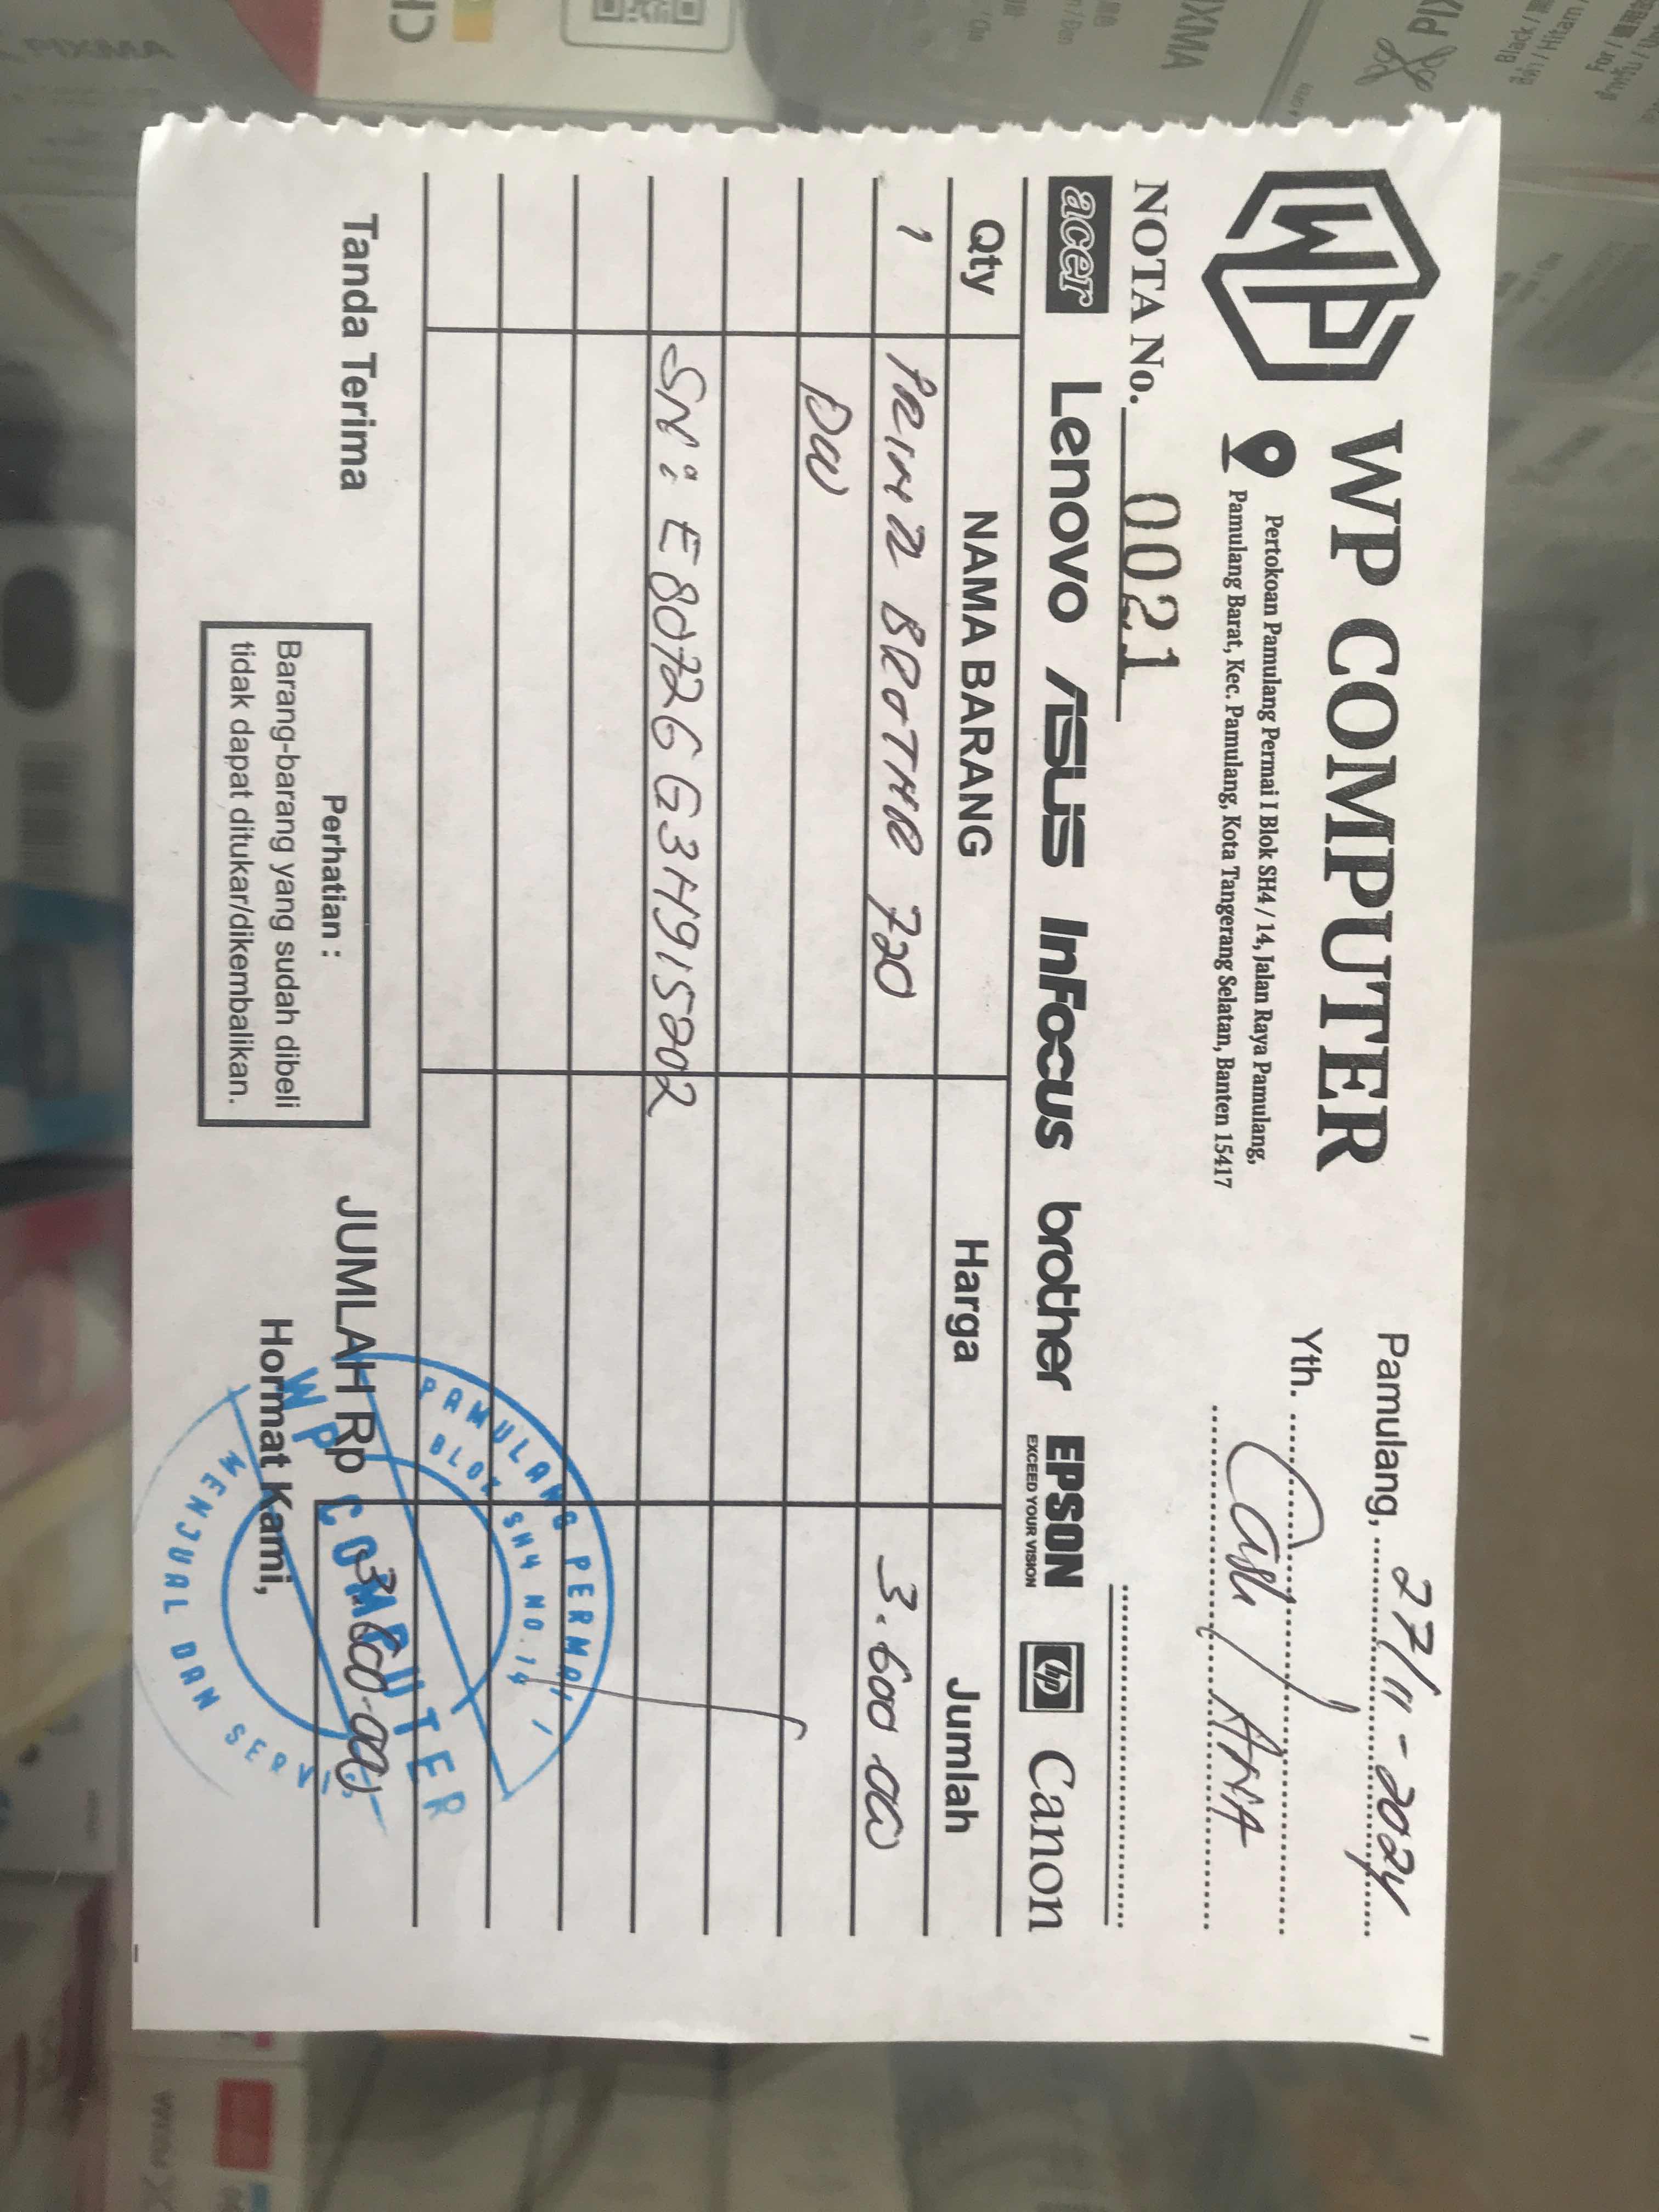 WP
WP COMPUTER
Pertokoan Pamulang Permai I Blok SH4 / 14, Jalan Raya Pamulang,
Pamulang Barat, Kec. Pamulang, Kota Tangerang Selatan, Banten 15417
Pamulang, 27/11-2024
Yth. Cash / ANA
NOTA No. 0021
acer Lenovo ASUS InFocus brother EPSON hp Canon
EXCEED YOUR VISION
Qty NAMA BARANG Harga Jumlah
1 BROTHR 720 3.600.000
DW
SN: E80726G3H915202
Tanda Terima
JUMLAH Rp 3.600.000
Hormat Kami,
Perhatian :
Barang-barang yang sudah dibeli
tidak dapat ditukar/dikembalikan.
PAMULANG PERMAI I
BLOK SH4 NO.14
WP COMPUTER
MENJUAL DAN SERVIS
PIXMA
PIXMA